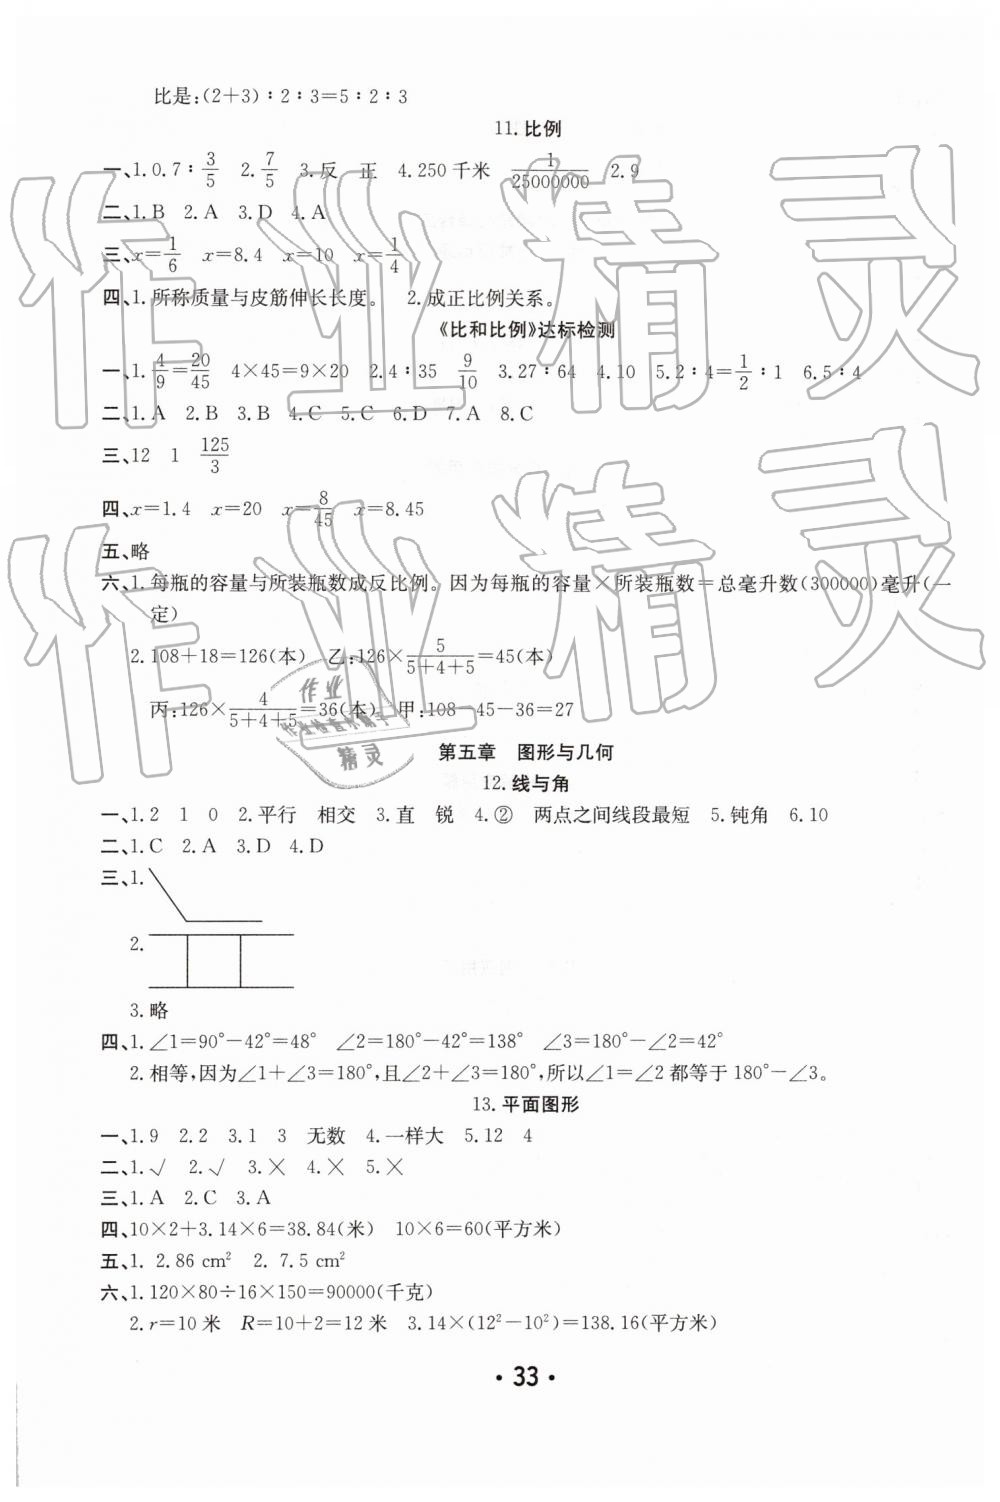 比是:(2+3)∶2∶3=5∶2∶3
11.比例
一、1.0.7∶3/5 2.7/5 3.反 正 4.250千米 1/25000000 2.9
二、1.B 2.A 3.D 4.A
三、x=1/6 x=8.4 x=10 x=1/4
四、1.所称质量与皮筋伸长长度。 2.成正比例关系。
《比和比例》达标检测
一、1.4/9=20/45 4×45=9×20 2.4∶35 9/10 3.27∶64 4.10 5.2∶4=1/2∶1 6.5∶4
二、1.A 2.B 3.B 4.C 5.C 6.D 7.A 8.C
三、12 1 125/3
四、x=1.4 x=20 x=8/45 x=8.45
五、略
六、1.每瓶的容量与所装瓶数成反比例。因为每瓶的容量×所装瓶数=总毫升数(300000)毫升(一
定)
2.108+18=126(本) 乙:126×5/(5+4+5)=45(本)
丙:126×4/(5+4+5)=36(本) 甲:108-45-36=27
第五章 图形与几何
12.线与角
一、1.2 1 0 2.平行 相交 3.直 锐 4.② 两点之间线段最短 5.钝角 6.10
二、1.C 2.A 3.D 4.D
三、1.
2.
3.略
四、1.∠1=90°-42°=48° ∠2=180°-42°=138° ∠3=180°-∠2=42°
2.相等,因为∠1+∠3=180°,且∠2+∠3=180°,所以∠1=∠2都等于180°-∠3。
13.平面图形
一、1.9 2.2 3.1 3 无数 4.一样大 5.12 4
二、1.√ 2.√ 3.× 4.× 5.×
三、1.A 2.C 3.A
四、10×2+3.14×6=38.84(米) 10×6=60(平方米)
五、1. 2.86 cm² 2. 7.5 cm²
六、1.120×80÷16×150=90000(千克)
2.r=10米 R=10+2=12米 3.14×(12²-10²)=138.16(平方米)
• 33 •
作业精灵
作业精灵
作业
精灵